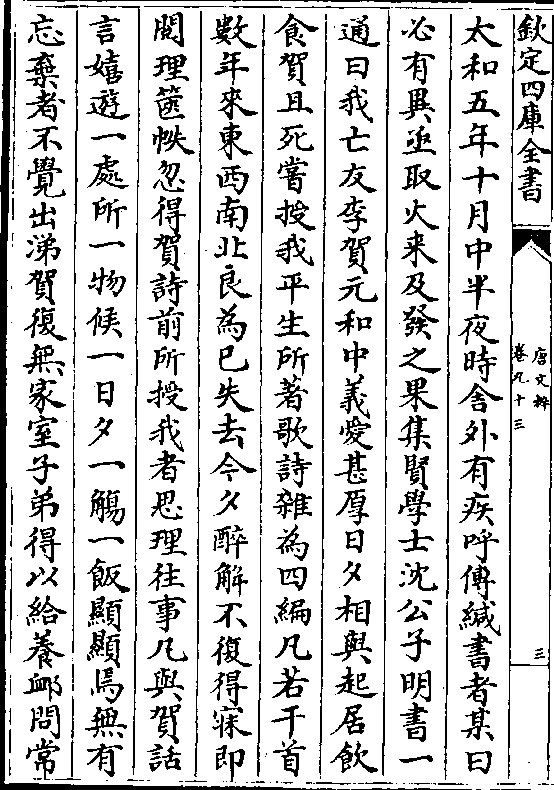 欽定四庫全書
唐文粹
卷九十三
三
太和五年十月中半夜時舍外有疾呼傳緘書者某曰
必有異亟取火来及發之果集賢學士沈公子明書一
通曰我亡友李賀元和中義愛甚厚日夕相與起居飲
食賀且死嘗授我平生所著歌詩雜為四編凡若干首
數年來東西南北良為已失去今夕醉解不復得寐即
閱理篋帙忽得賀詩前所授我者思理往事凡與賀話
言嬉遊一處所一物候一日夕一觴一飯顯顯焉無有
忘棄者不覺出涕賀復無家室子弟得以給養䘏問常